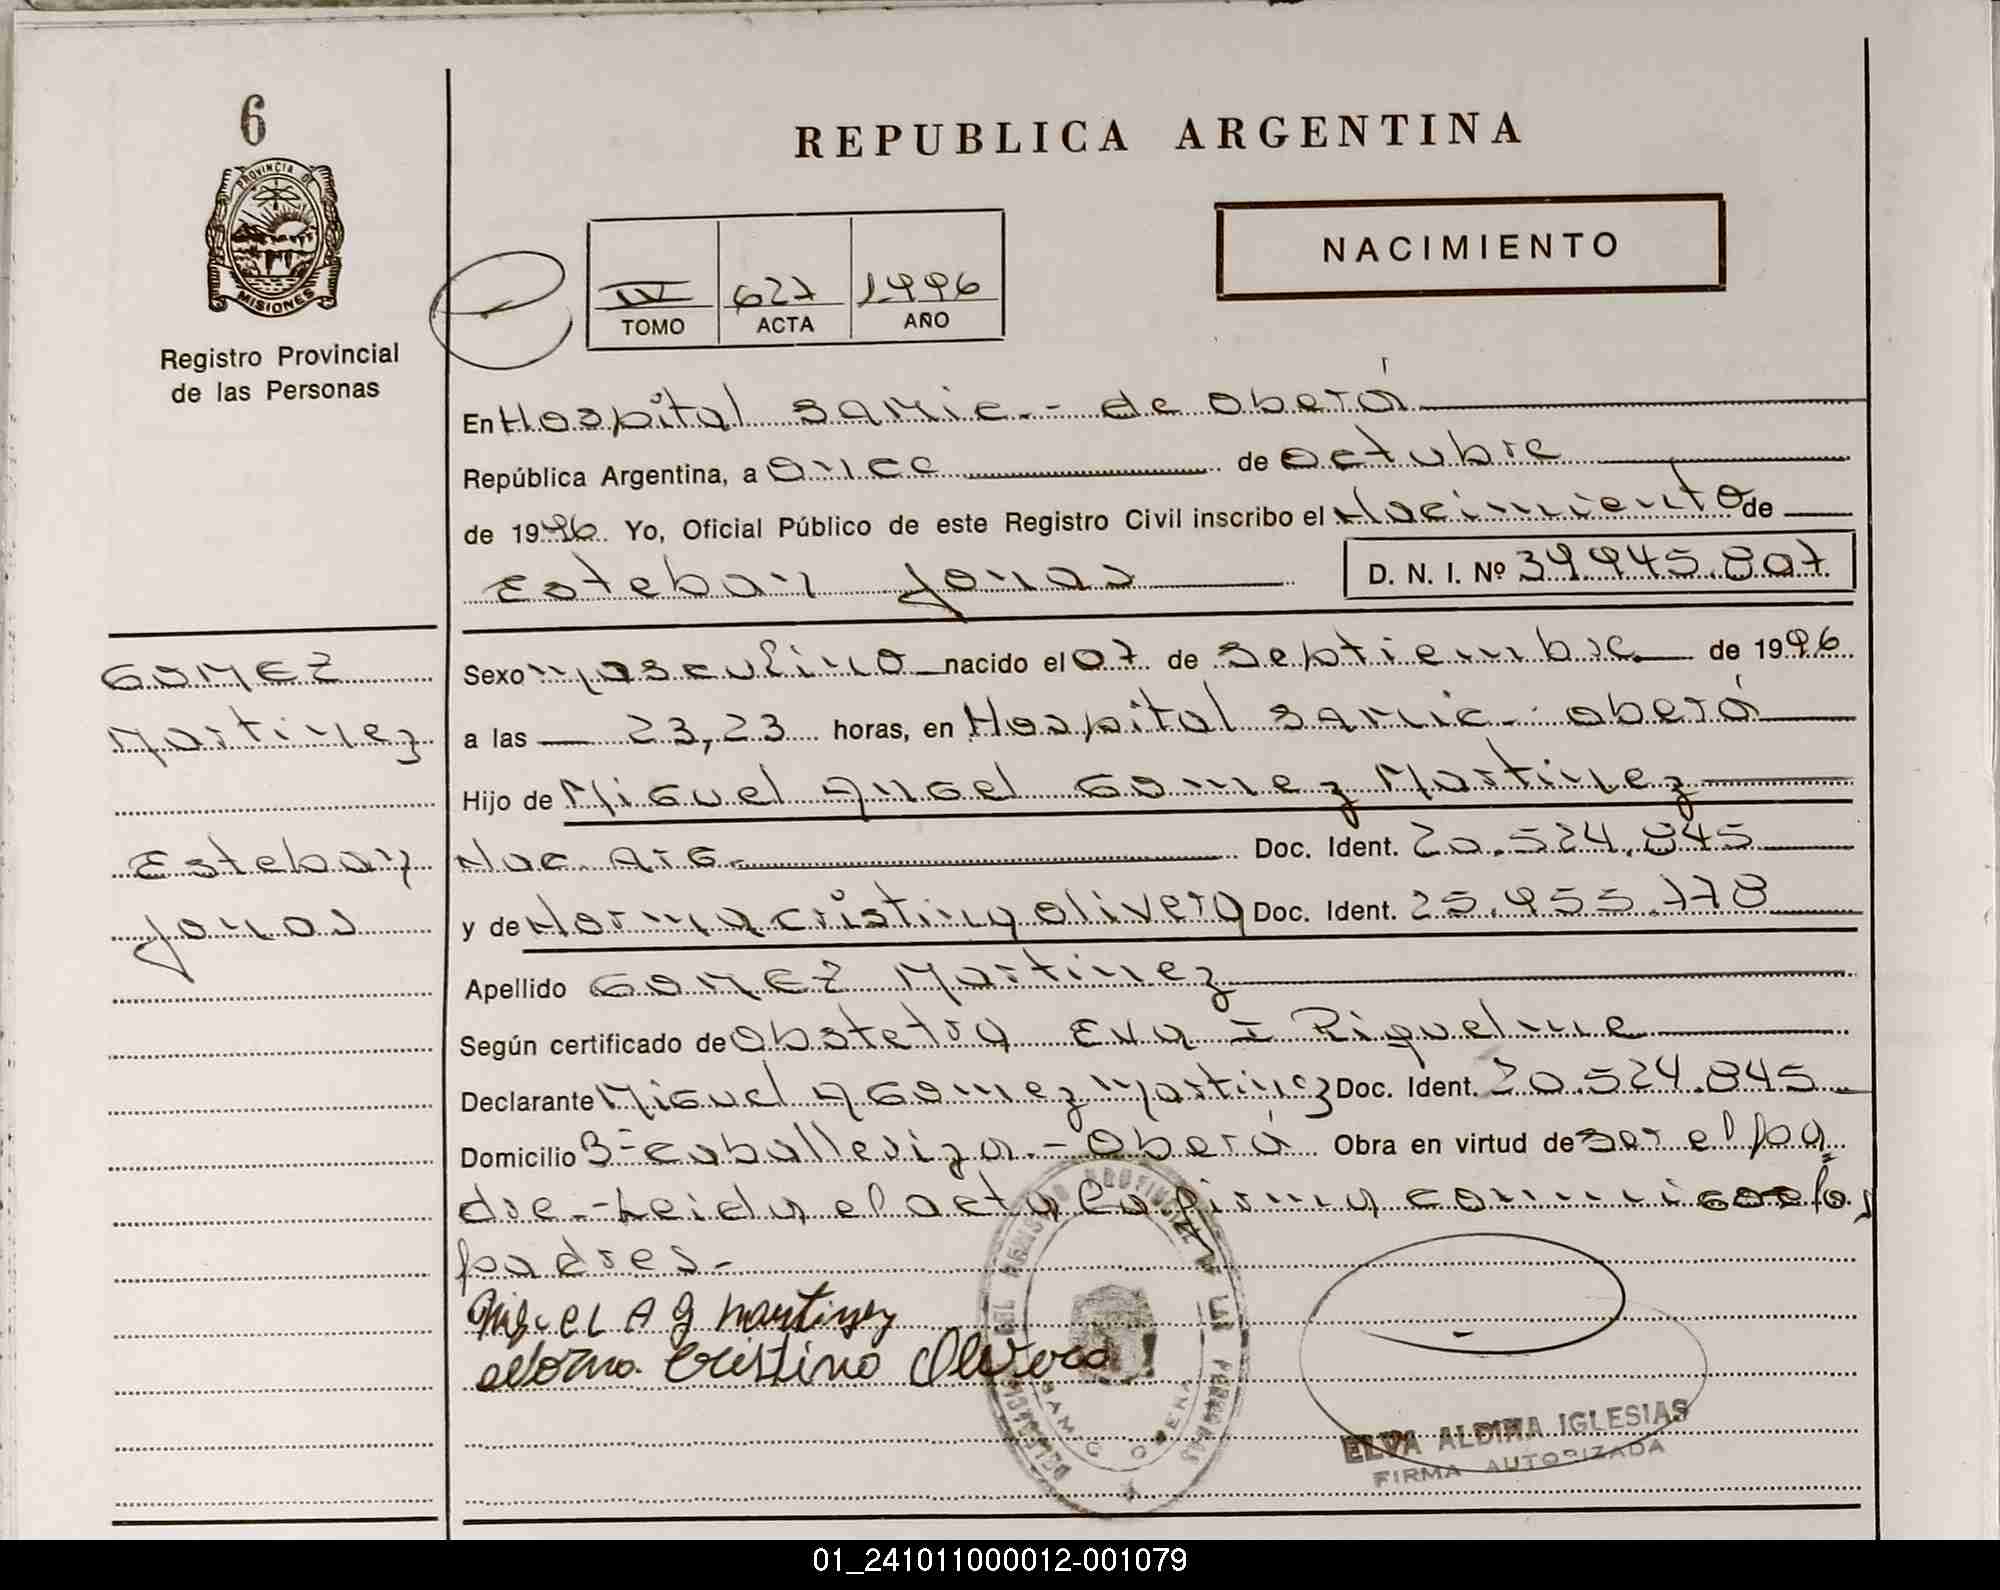 6
REPUBLICA ARGENTINA
PROVINCIA DE
MISIONES
Registro Provincial
de las Personas
NACIMIENTO
IV 627 1996
TOMO ACTA AÑO
En Hospital SAMic.- de oberá
República Argentina, a once de octubre
de 1996. Yo, Oficial Público de este Registro Civil inscribo el Nacimiento de
Esteban Jonas D. N. I. Nº 39.945.807
GOMEZ
Martinez
Esteban
Jonas
Sexo masculino nacido el 07 de septiembre de 1996
a las 23,23 horas, en Hospital SAMic.- oberá
Hijo de Miguel Angel Gomez Martinez
Nac. Arg. Doc. Ident. 20.524.845
y de Norma cristina olivera Doc. Ident. 25.955.778
Apellido GOMEZ Martinez
Según certificado de obstetra Eva I Riquelme
Declarante Miguel A Gomez Martinez Doc. Ident. 20.524.845
Domicilio Bº caballeriza.- oberá Obra en virtud de ser el pa
dre.- Leida el acta la firma conmigo los
padres.-
Miguel A G Martinez
Norma Cristina Olivera
SAMIC OBERA
ELVA ALDINA IGLESIAS
FIRMA AUTORIZADA
01_241011000012-001079